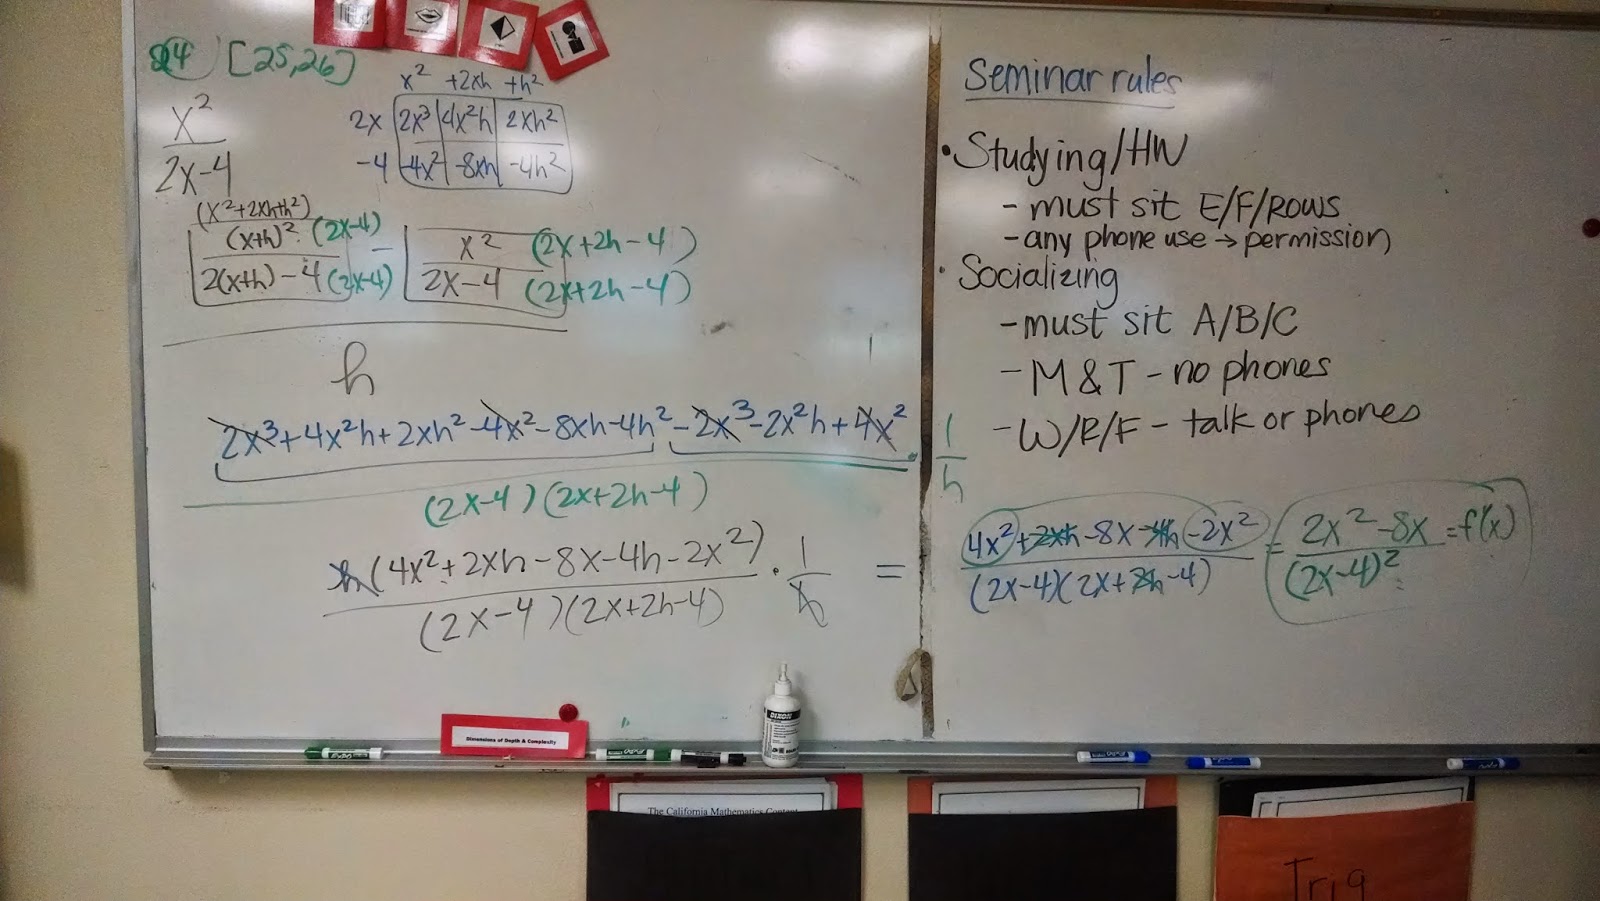 24 [25,26]
x²
2x-4
x² +2xh +h²
2x 2x³ 4x²h 2xh²
-4 -4x² -8xh -4h²
(x²+2xh+h²)
(x+h)² (2x-4) - x² (2x+2h-4)
2(x+h)-4 (2x-4) 2x-4 (2x+2h-4)
h
2x³+4x²h+2xh²-4x²-8xh-4h²-2x³-2x²h+4x² · 1
h
(2x-4)(2x+2h-4)
h(4x²+2xh-8x-4h-2x²) · 1
(2x-4)(2x+2h-4) h
= 4x²+2xh-8x-4h-2x² = 2x²-8x = f'(x)
(2x-4)(2x+2h-4) (2x-4)²
Seminar rules
• Studying/HW
- must sit E/F/ROWS
- any phone use → permission
• Socializing
- must sit A/B/C
- M & T - no phones
- W/R/F - talk or phones
Dimensions of Depth & Complexity
DIXON
EXPO
The California Mathematics Content
Trig